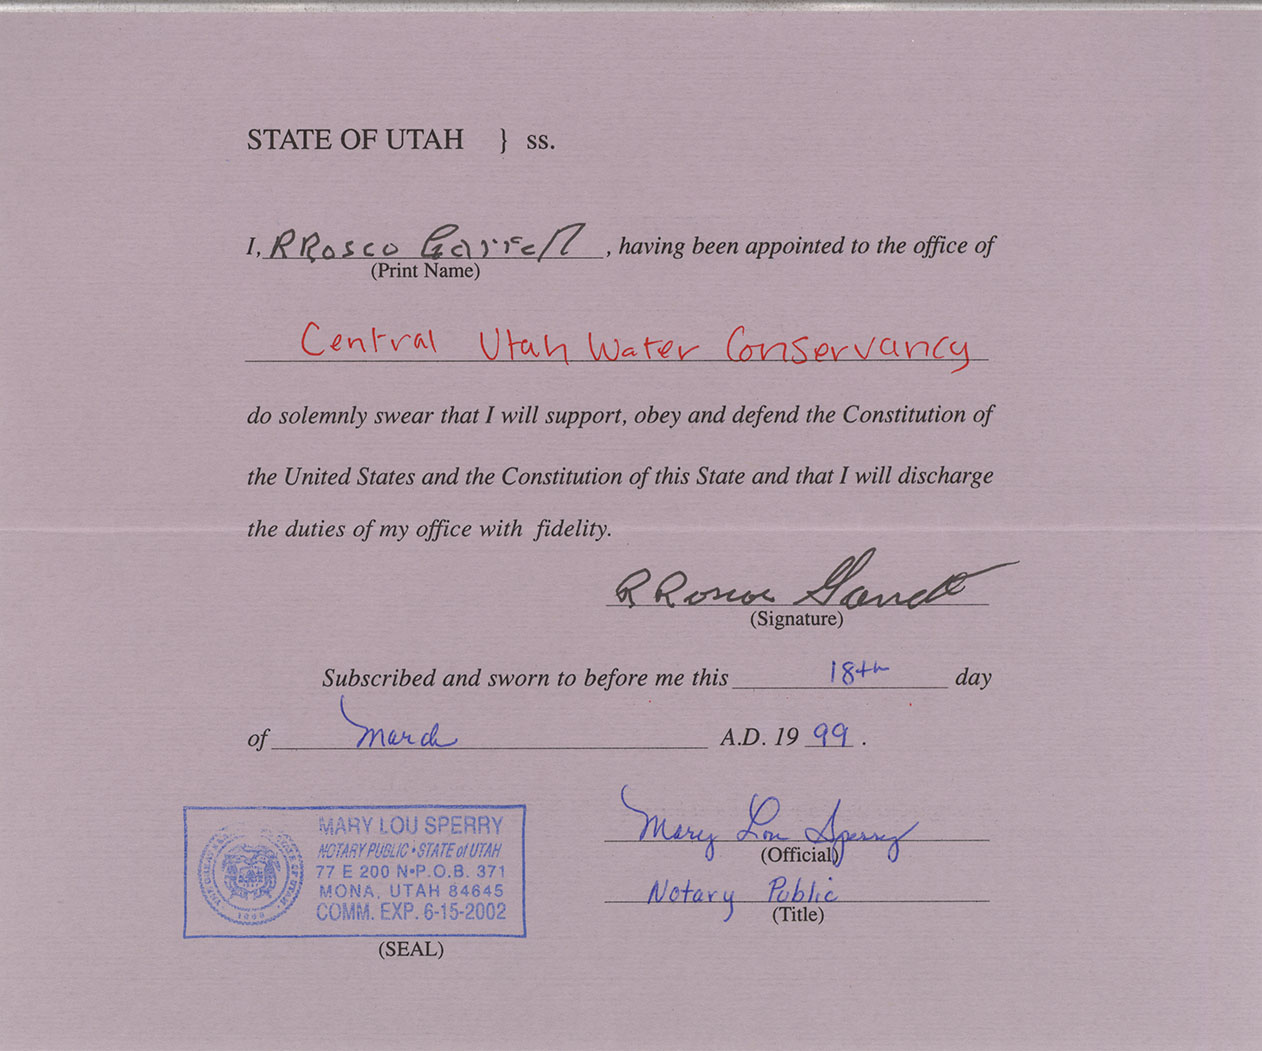 STATE OF UTAH } ss.
I, R Rosco Garrett, having been appointed to the office of
(Print Name)
Central Utah Water Conservancy
do solemnly swear that I will support, obey and defend the Constitution of
the United States and the Constitution of this State and that I will discharge
the duties of my office with fidelity.
R Roscoe Garrett
(Signature)
Subscribed and sworn to before me this 18th day
of March A.D. 19 99.
Mary Lou Sperry
(Official)
Notary Public
(Title)
MARY LOU SPERRY
NOTARY PUBLIC • STATE of UTAH
77 E 200 N • P.O.B. 371
MONA, UTAH 84645
COMM. EXP. 6-15-2002
(SEAL)